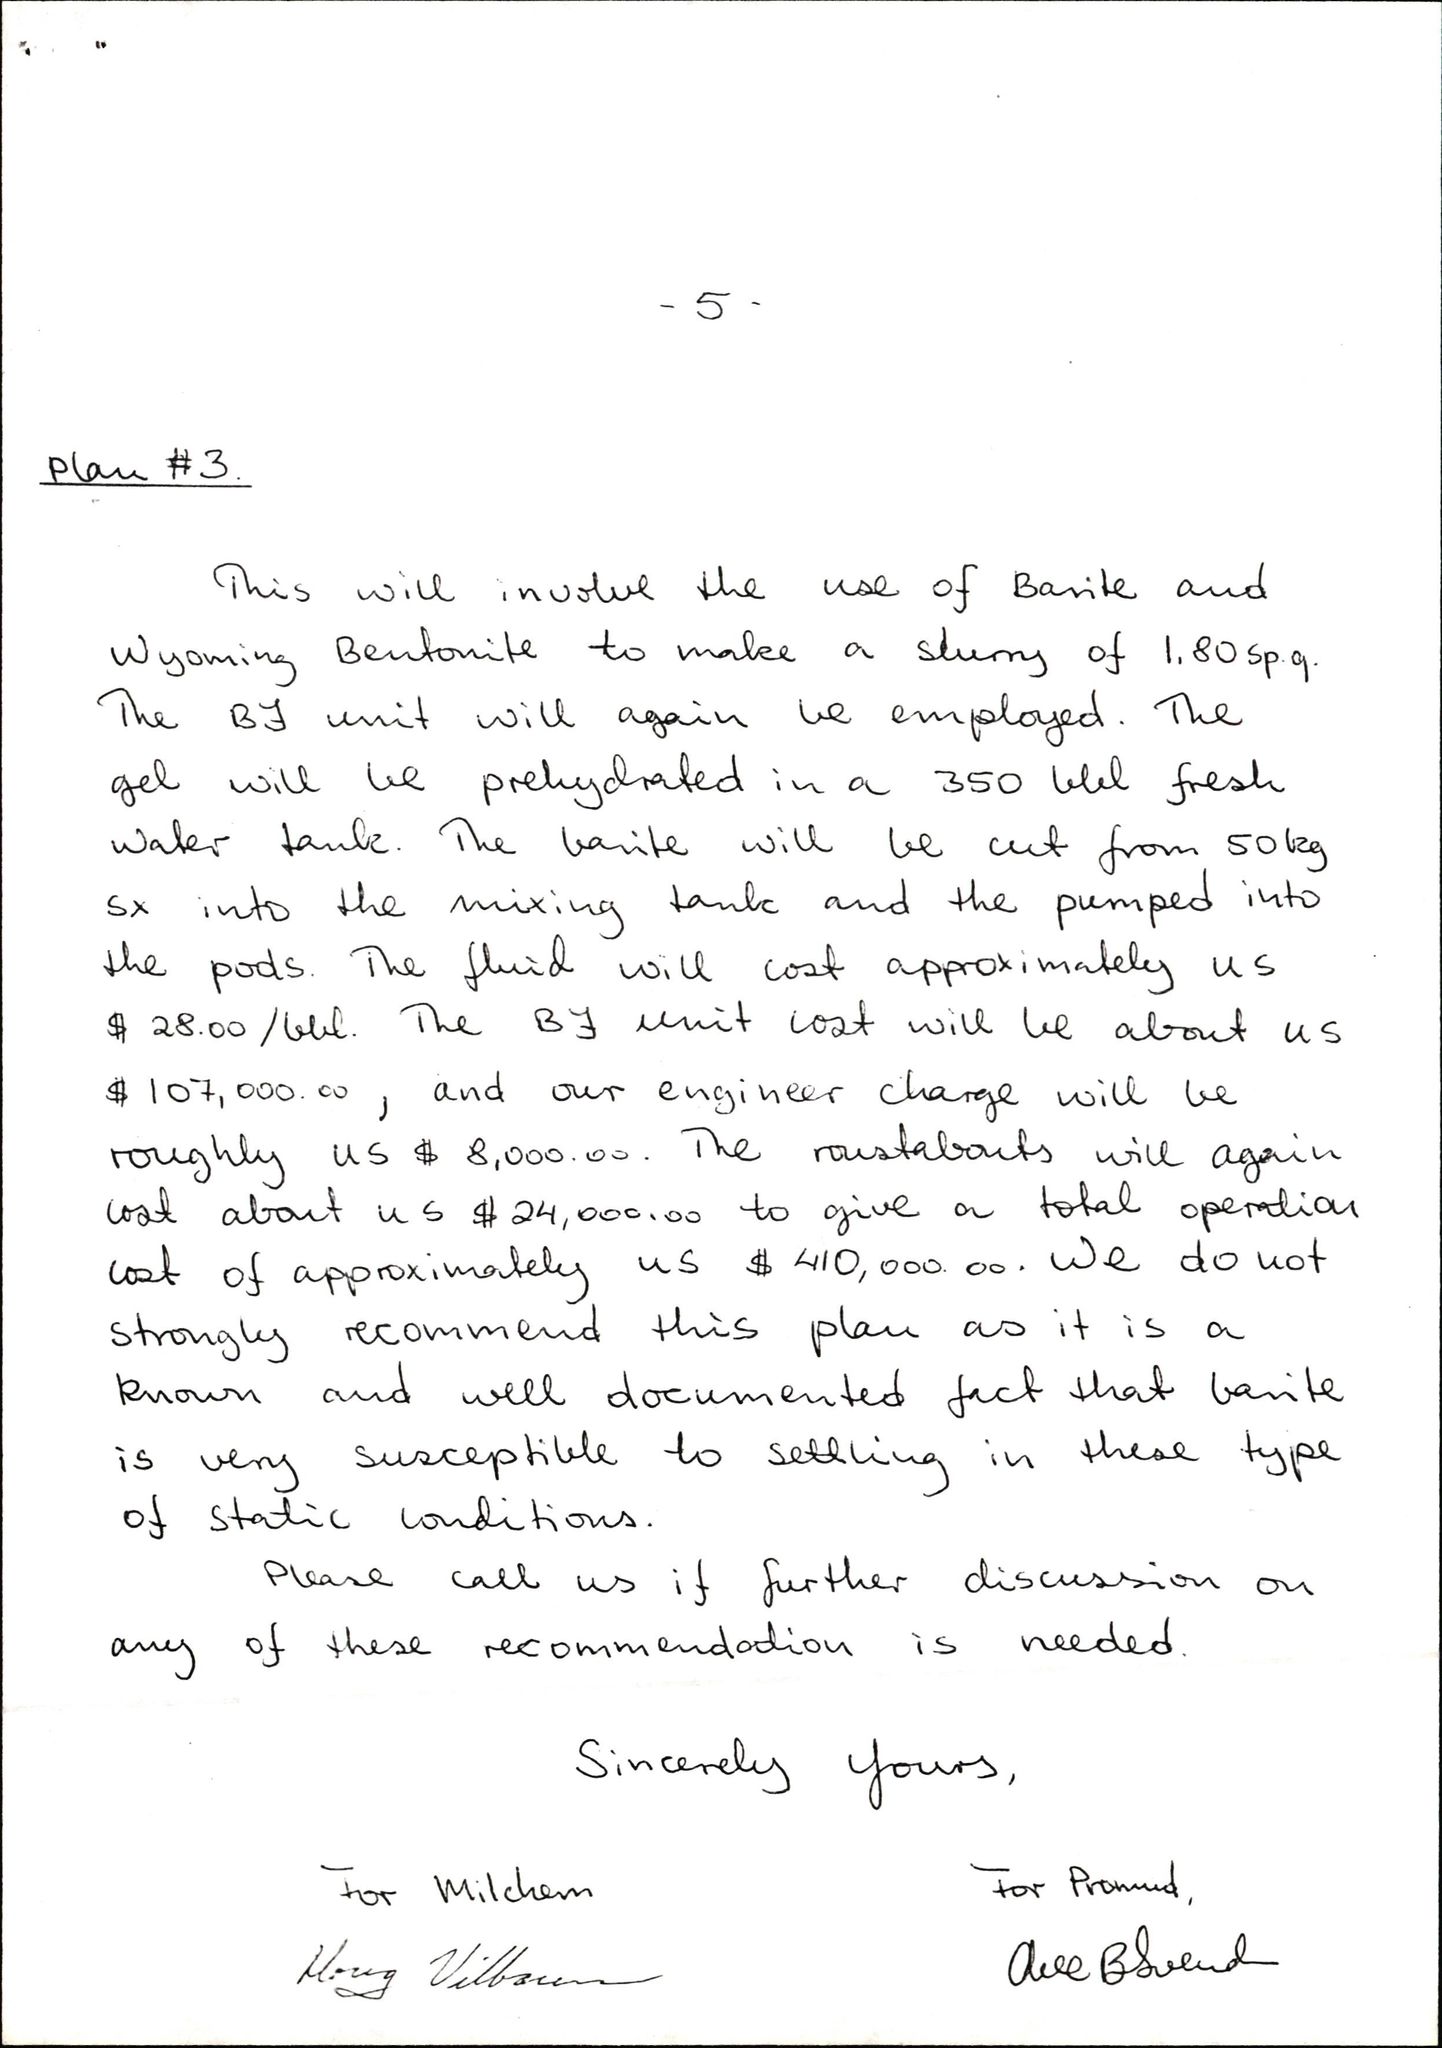 - 5 -
Plan #3.
This will involve the use of Barite and
Wyoming Bentonite to make a slurry of 1.80 sp.g.
The BJ unit will again be employed. The
gel will be prehydrated in a 350 bbl fresh
water tank. The barite will be cut from 50 kg
sx into the mixing tank and the pumped into
the pods. The fluid will cost approximately US
$ 28.00/bbl. The BJ unit cost will be about US
$ 107,000.00, and our engineer charge will be
roughly US $ 8,000.00. The roustabouts will again
cost about US $ 24,000.00 to give a total operation
cost of approximately US $ 410,000.00. We do not
strongly recommend this plan as it is a
known and well documented fact that barite
is very susceptible to settling in these type
of static conditions.
Please call us if further discussion on
any of these recommendation is needed.
Sincerely Yours,
For Milchem For Promud,
Doug